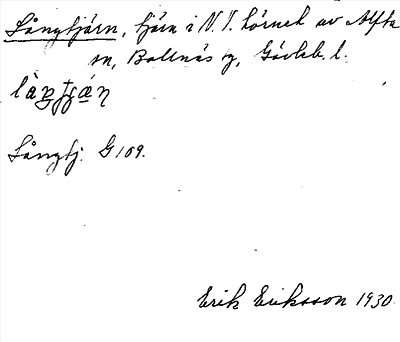 Långtjärn, tjärn i N.V. hörnet av Alfta
sn, Bollnäs sg, Gävleb. l.
Långtj. G 109.
Erik Eriksson 1930.